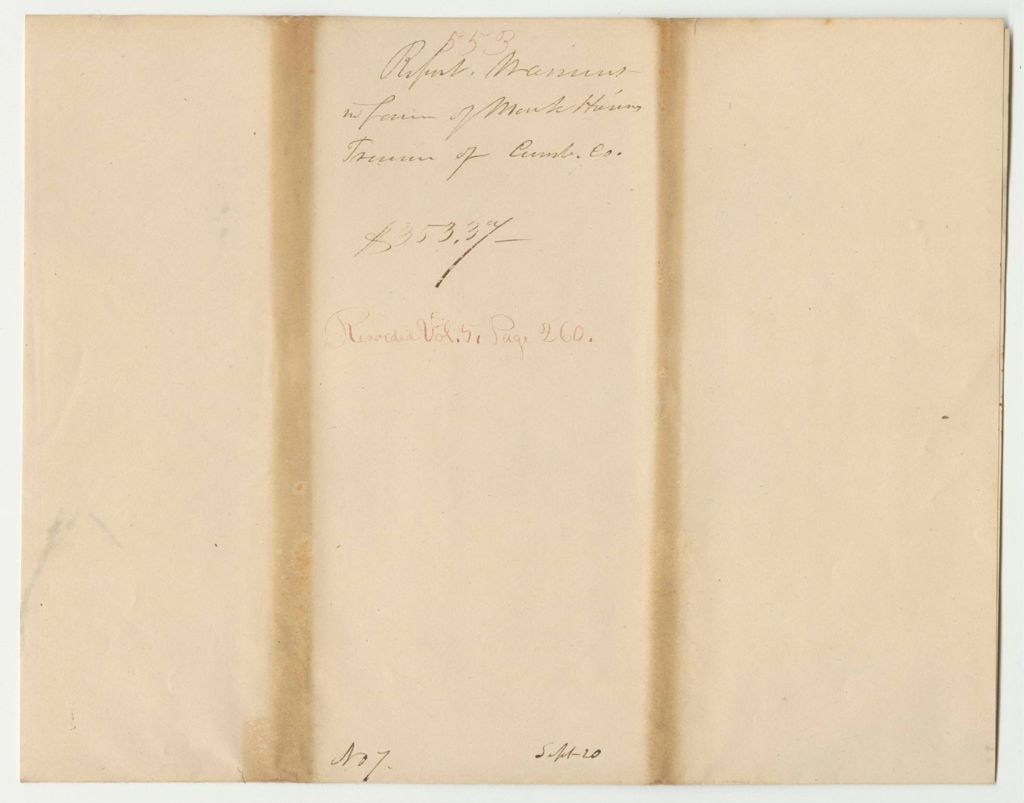 553
Report. Warrant
in favour of Mark Harris
Treasurer of Cumb. Co.
$353.37
Recorded Vol. 5, Page 260.
No 7.
Sept 20